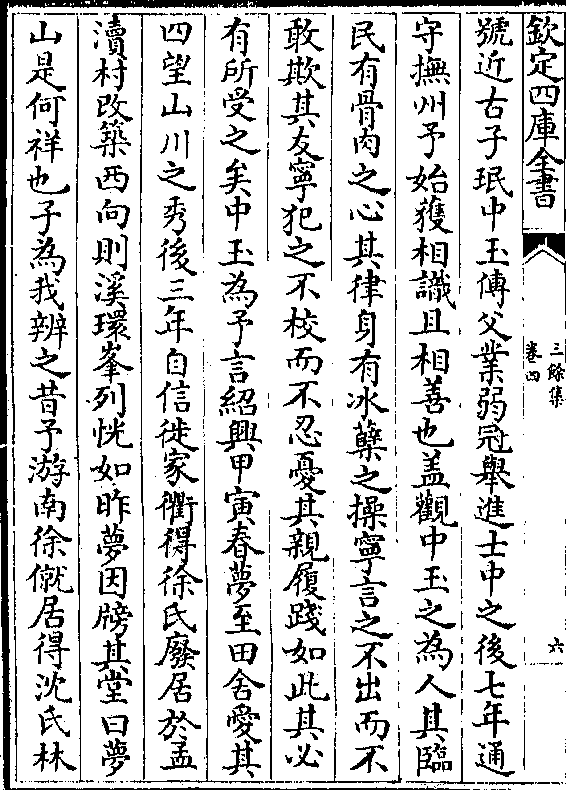 欽定四庫全書
三餘集
卷四
六
號近古子珉中玉傅父業弱冠舉進士中之後七年通
守撫州予始獲相識且相善也盖觀中玉之為人其臨
民有骨肉之心其律身有冰蘖之操寧言之不出而不
敢欺其友寧犯之不校而不忍憂其親履踐如此其必
有所受之矣中玉為予言紹興甲寅春夢至田舍愛其
四望山川之秀後三年自信徙家衢得徐氏廢居於孟
瀆村改築西向則溪環峯列恍如昨夢因牓其堂曰夢
山是何祥也子為我辨之昔予游南徐僦居得沈氏林